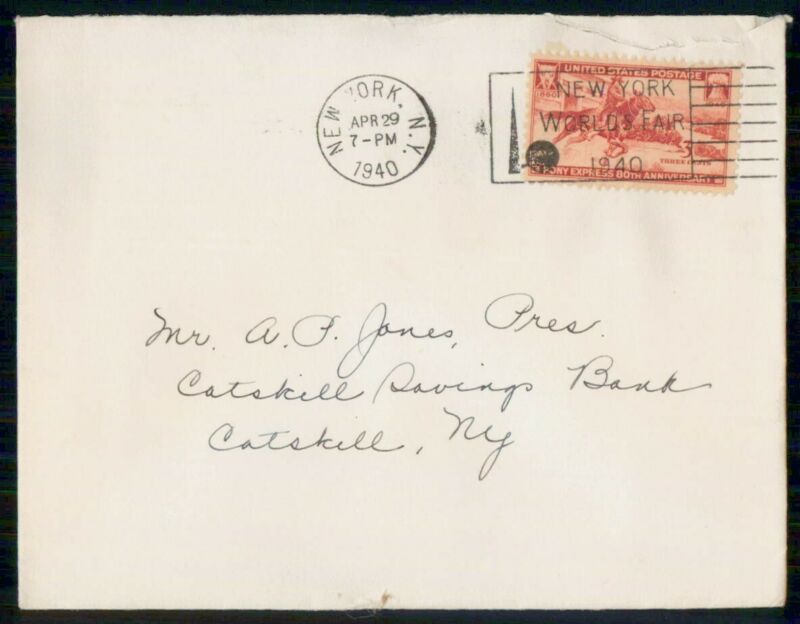 NEW YORK, N.Y.
APR 29
7-PM
1940
UNITED STATES POSTAGE
1860
NEW YORK
WORLD'S FAIR
1940
THREE CENTS
PONY EXPRESS 80TH ANNIVERSARY
Mr. A. P. Jones, Pres.
Catskill Savings Bank
Catskill, Ny